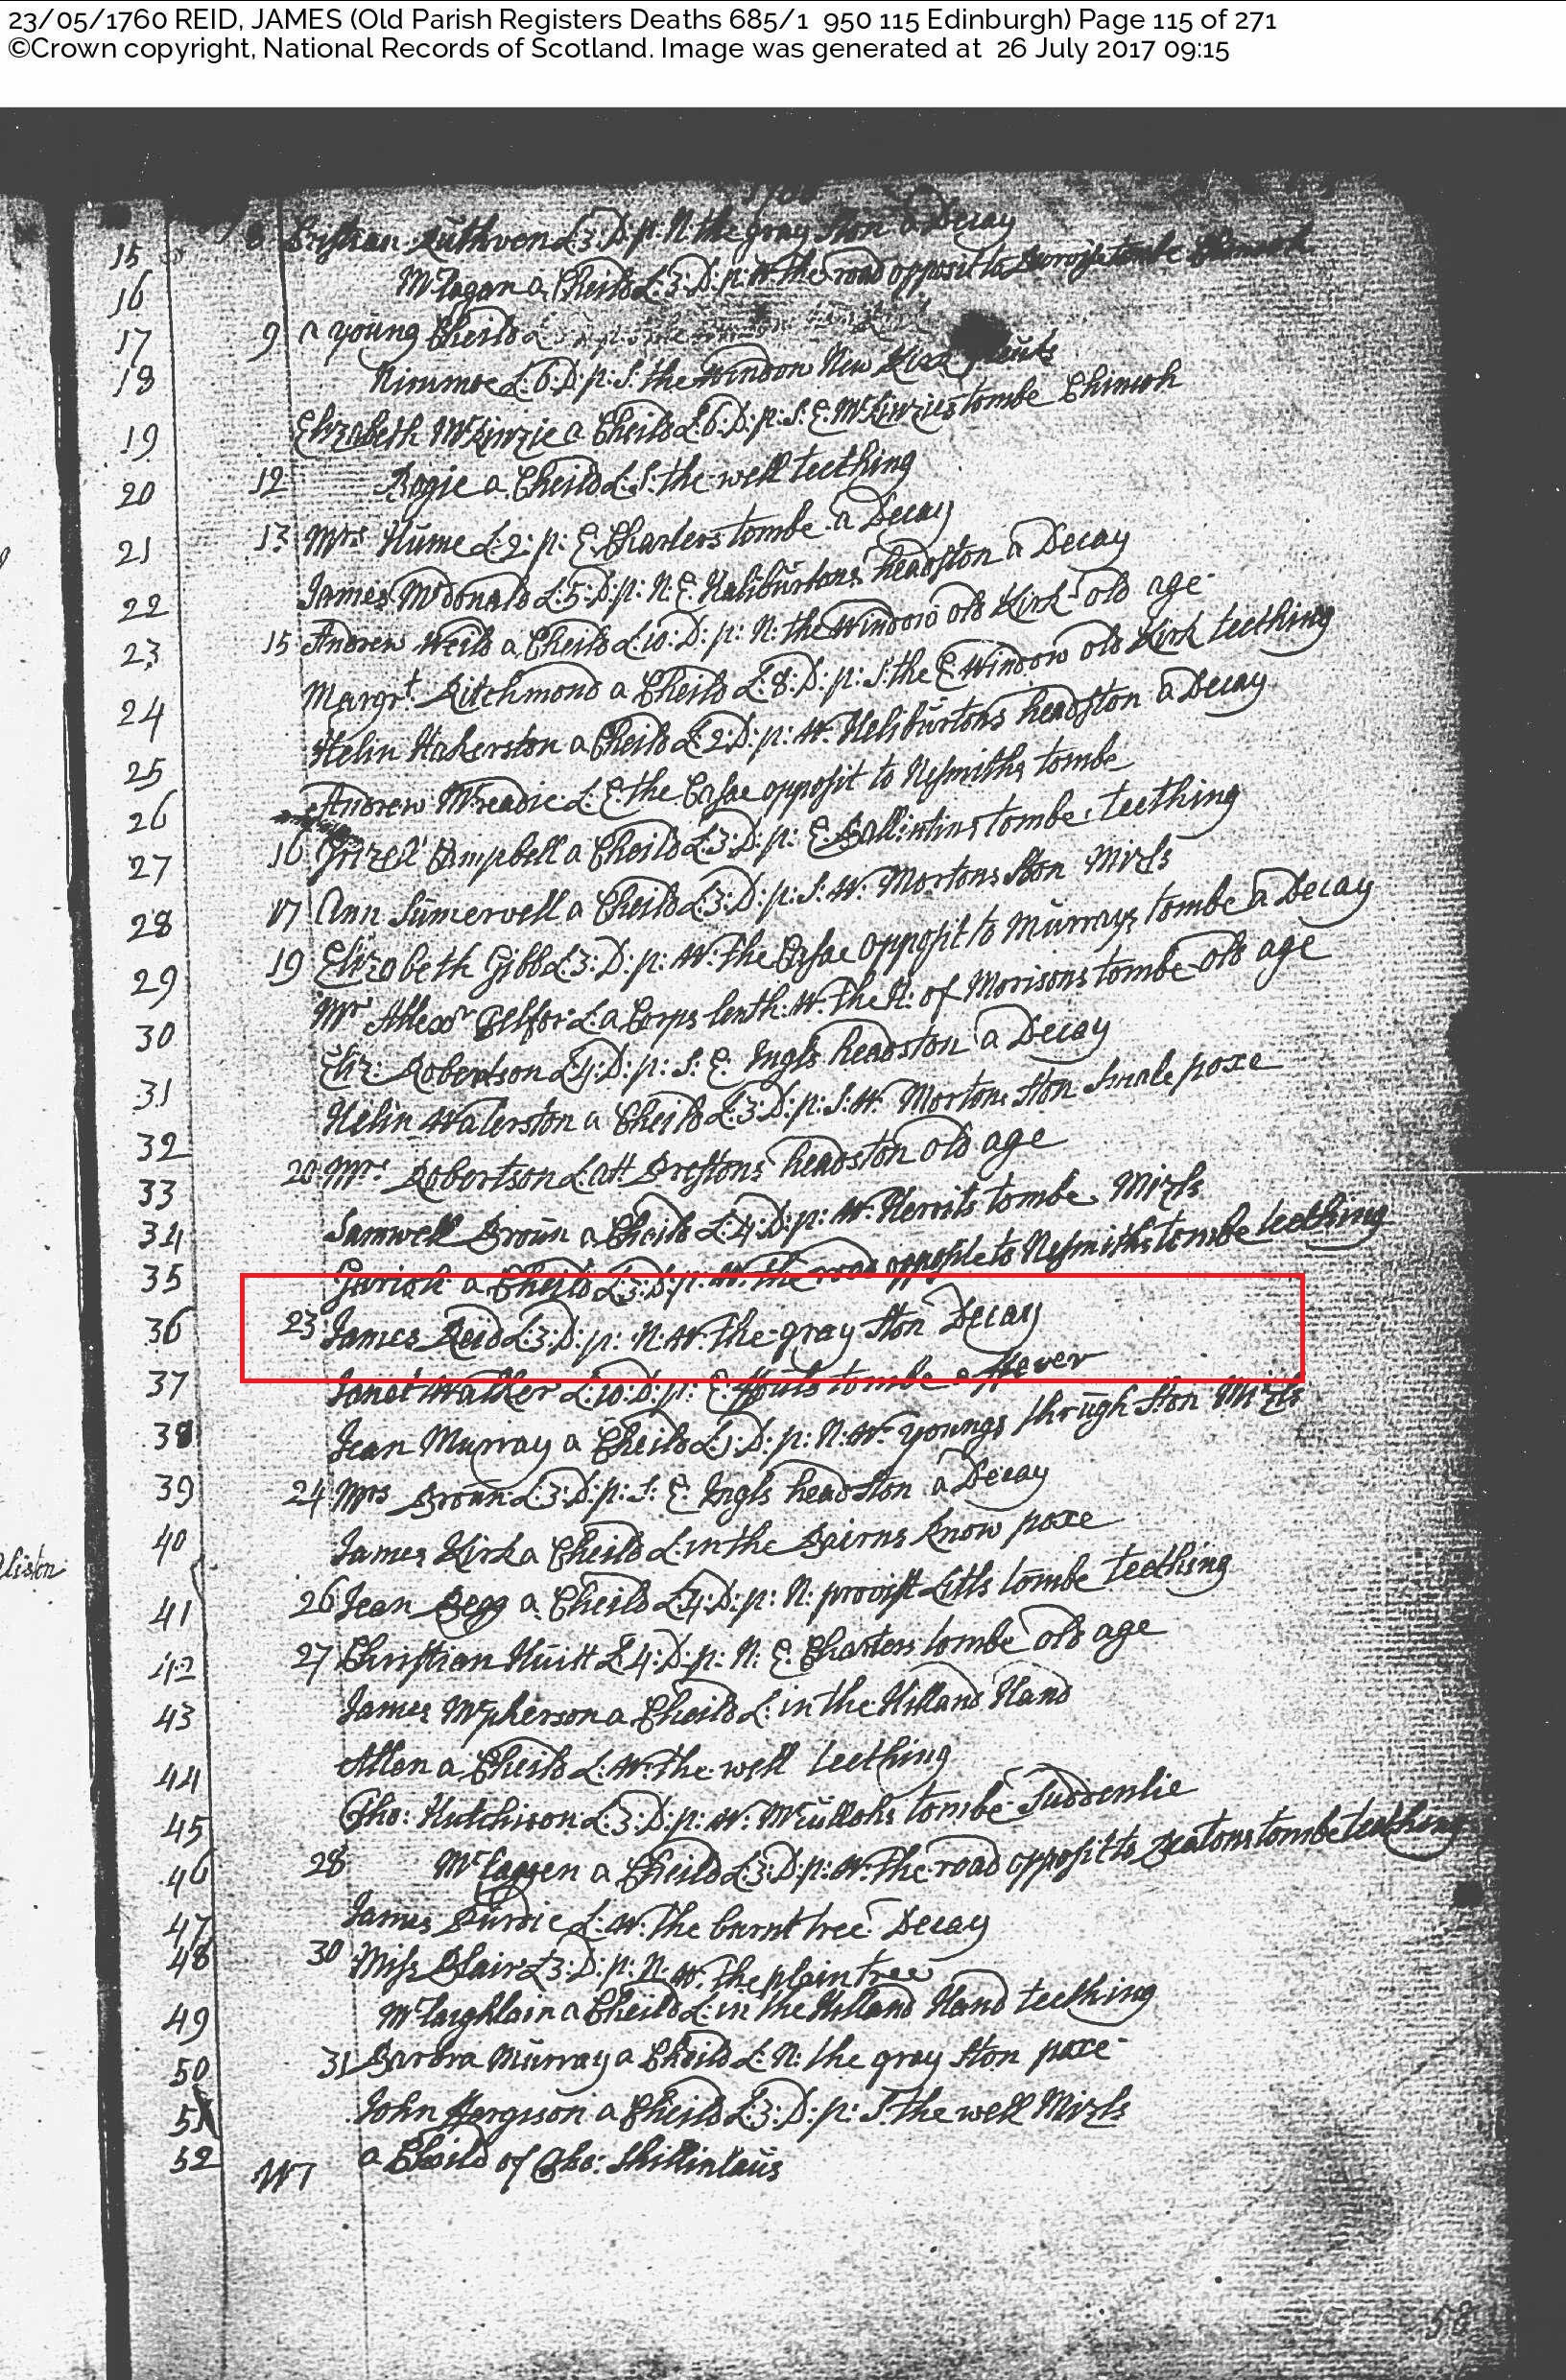 23/05/1760 REID, JAMES (Old Parish Registers Deaths 685/1 950 115 Edinburgh) Page 115 of 271
©Crown copyright, National Records of Scotland. Image was generated at 26 July 2017 09:15
15 8 Cristian Ruthven L:3:D:p: N the gray ston a Decay
16 Mclagan a Cheild L:3:D:p: W: the road opposit to tombe Chincoh
17 9 a young Cheild L
18 Nimmoe L:6:D:p: S: the Windoou New Kirk
19 Elizabeth McKinzie a Cheild L:6:D:p: S: E: McKinzies tombe Chincoh
20 12 Bogie a Cheild L: S: the well teething
21 13 Mrs Hume L:2:p: E: Charters tombe a Decay
22 James Mcdonald L:5:D:p: N: E: Haliburtons headston a Decay
23 15 Andrew Weild a Cheild L:10:D:p: N: the Windoou old Kirk old age
24 Margrt Ritchmond a Cheild L:8:D:p: S: the E: Windoou old Kirk teething
25 Helin Hakerston a Cheild L:2:D:p: W: Heliburtons headston a Decay
26 Andrew Mcreadie L: E: the Casae opposit to Nesmiths tombe
27 16 Grizell Campbell a Cheild L:3:D:p: E: Ballintins tombe teething
28 17 Ann Sumervell a Cheild L:3:D:p: S: W: Mortons ston Mizls
29 19 Elizabeth Gibb L:3:D:p: W: the Casae opposit to Murrays tombe a Decay
30 Mr Allexr L: a Corps lenth: W: the H: of Morisons tombe old age
31 Eliz: Robertson L:4:D:p: S: E: Ingls headston a Decay
32 Helin Waterston a Cheild L:3:D:p: S: W: Mortons ston Smale poxe
33 20 Mrs Robertson L: att Prestons headston old age
34 Samwell Broun a Cheild L:4:D:p: W: Herrits tombe Mizls
35 a Cheild L:3:D:p: W: the road opposite to Nesmiths tombe teething
36 23 James Reid L:3:D:p: N: W: the gray ston Decay
37 Janet Walker L:10:D:p: E: tombe a ffever
38 Jean Murray a Cheild L:1:D:p: N: W: Youngs through ston Mizls
39 24 Mrs Broun L:3:D:p: S: E: Ingls headston a Decay
40 James Kirk a Cheild L: in the Bairns know poxe
41 26 Jean Begg a Cheild L:4:D:p: N: provist Litls tombe teething
42 27 Christian Huitt L:4:D:p: N: E: Charters tombe old age
43 James Mcpherson a Cheild L: in the Hilland Hand
44 Allon a Cheild L: W: the well teething
45 Tho: Hutchison L:3:D:p: W: Mcullohs tombe Suddenlie
46 28 a Cheild L:3:D:p: W: the road opposit to Seatons tombe teething
47 James Purdie L: W: the burnt tree Decay
48 30 Miss Blair L:3:D:p: N: W: the plain tree
49 Mclaighlain a Cheild L: in the Hilland Hand teething
50 31 Barbra Murray a Cheild L: N: the gray ston poxe
51 John ffergsson a Cheild L:3:D:p: S: the well Mizls
52 a Cheild of Tho: Shillinlaus
58